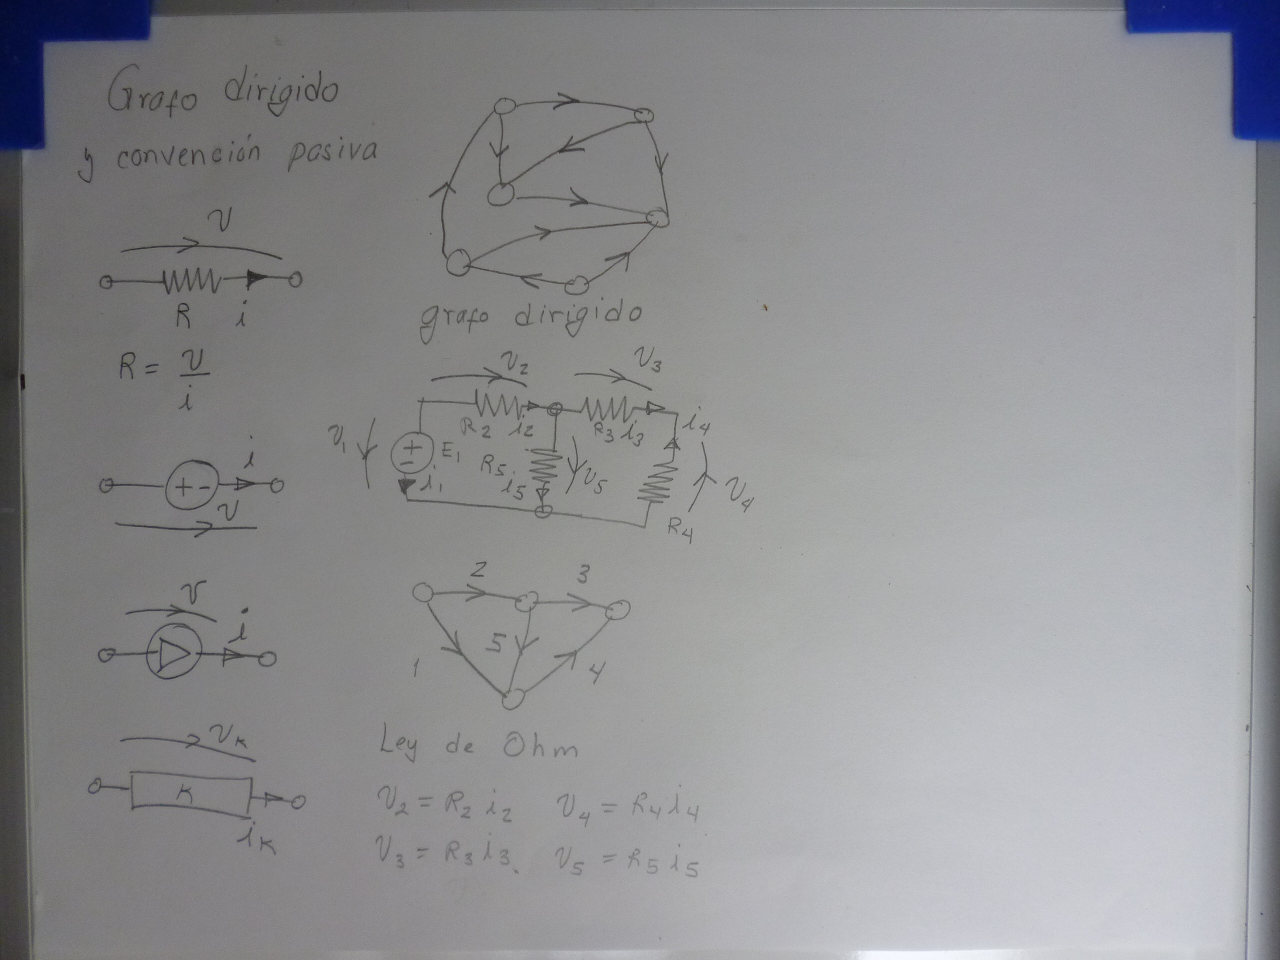 Grafo dirigido
y convención pasiva
v
R i
R = v
i
i
v
v
i
vk
k
ik
grafo dirigido
v2 v3
v1 R2 i2 R3 i3 i4
+ - E1 R5 v5 v4
i1 i5 R4
2 3
1 5 4
Ley de Ohm
v2 = R2 i2 v4 = R4 i4
v3 = R3 i3. v5 = R5 i5